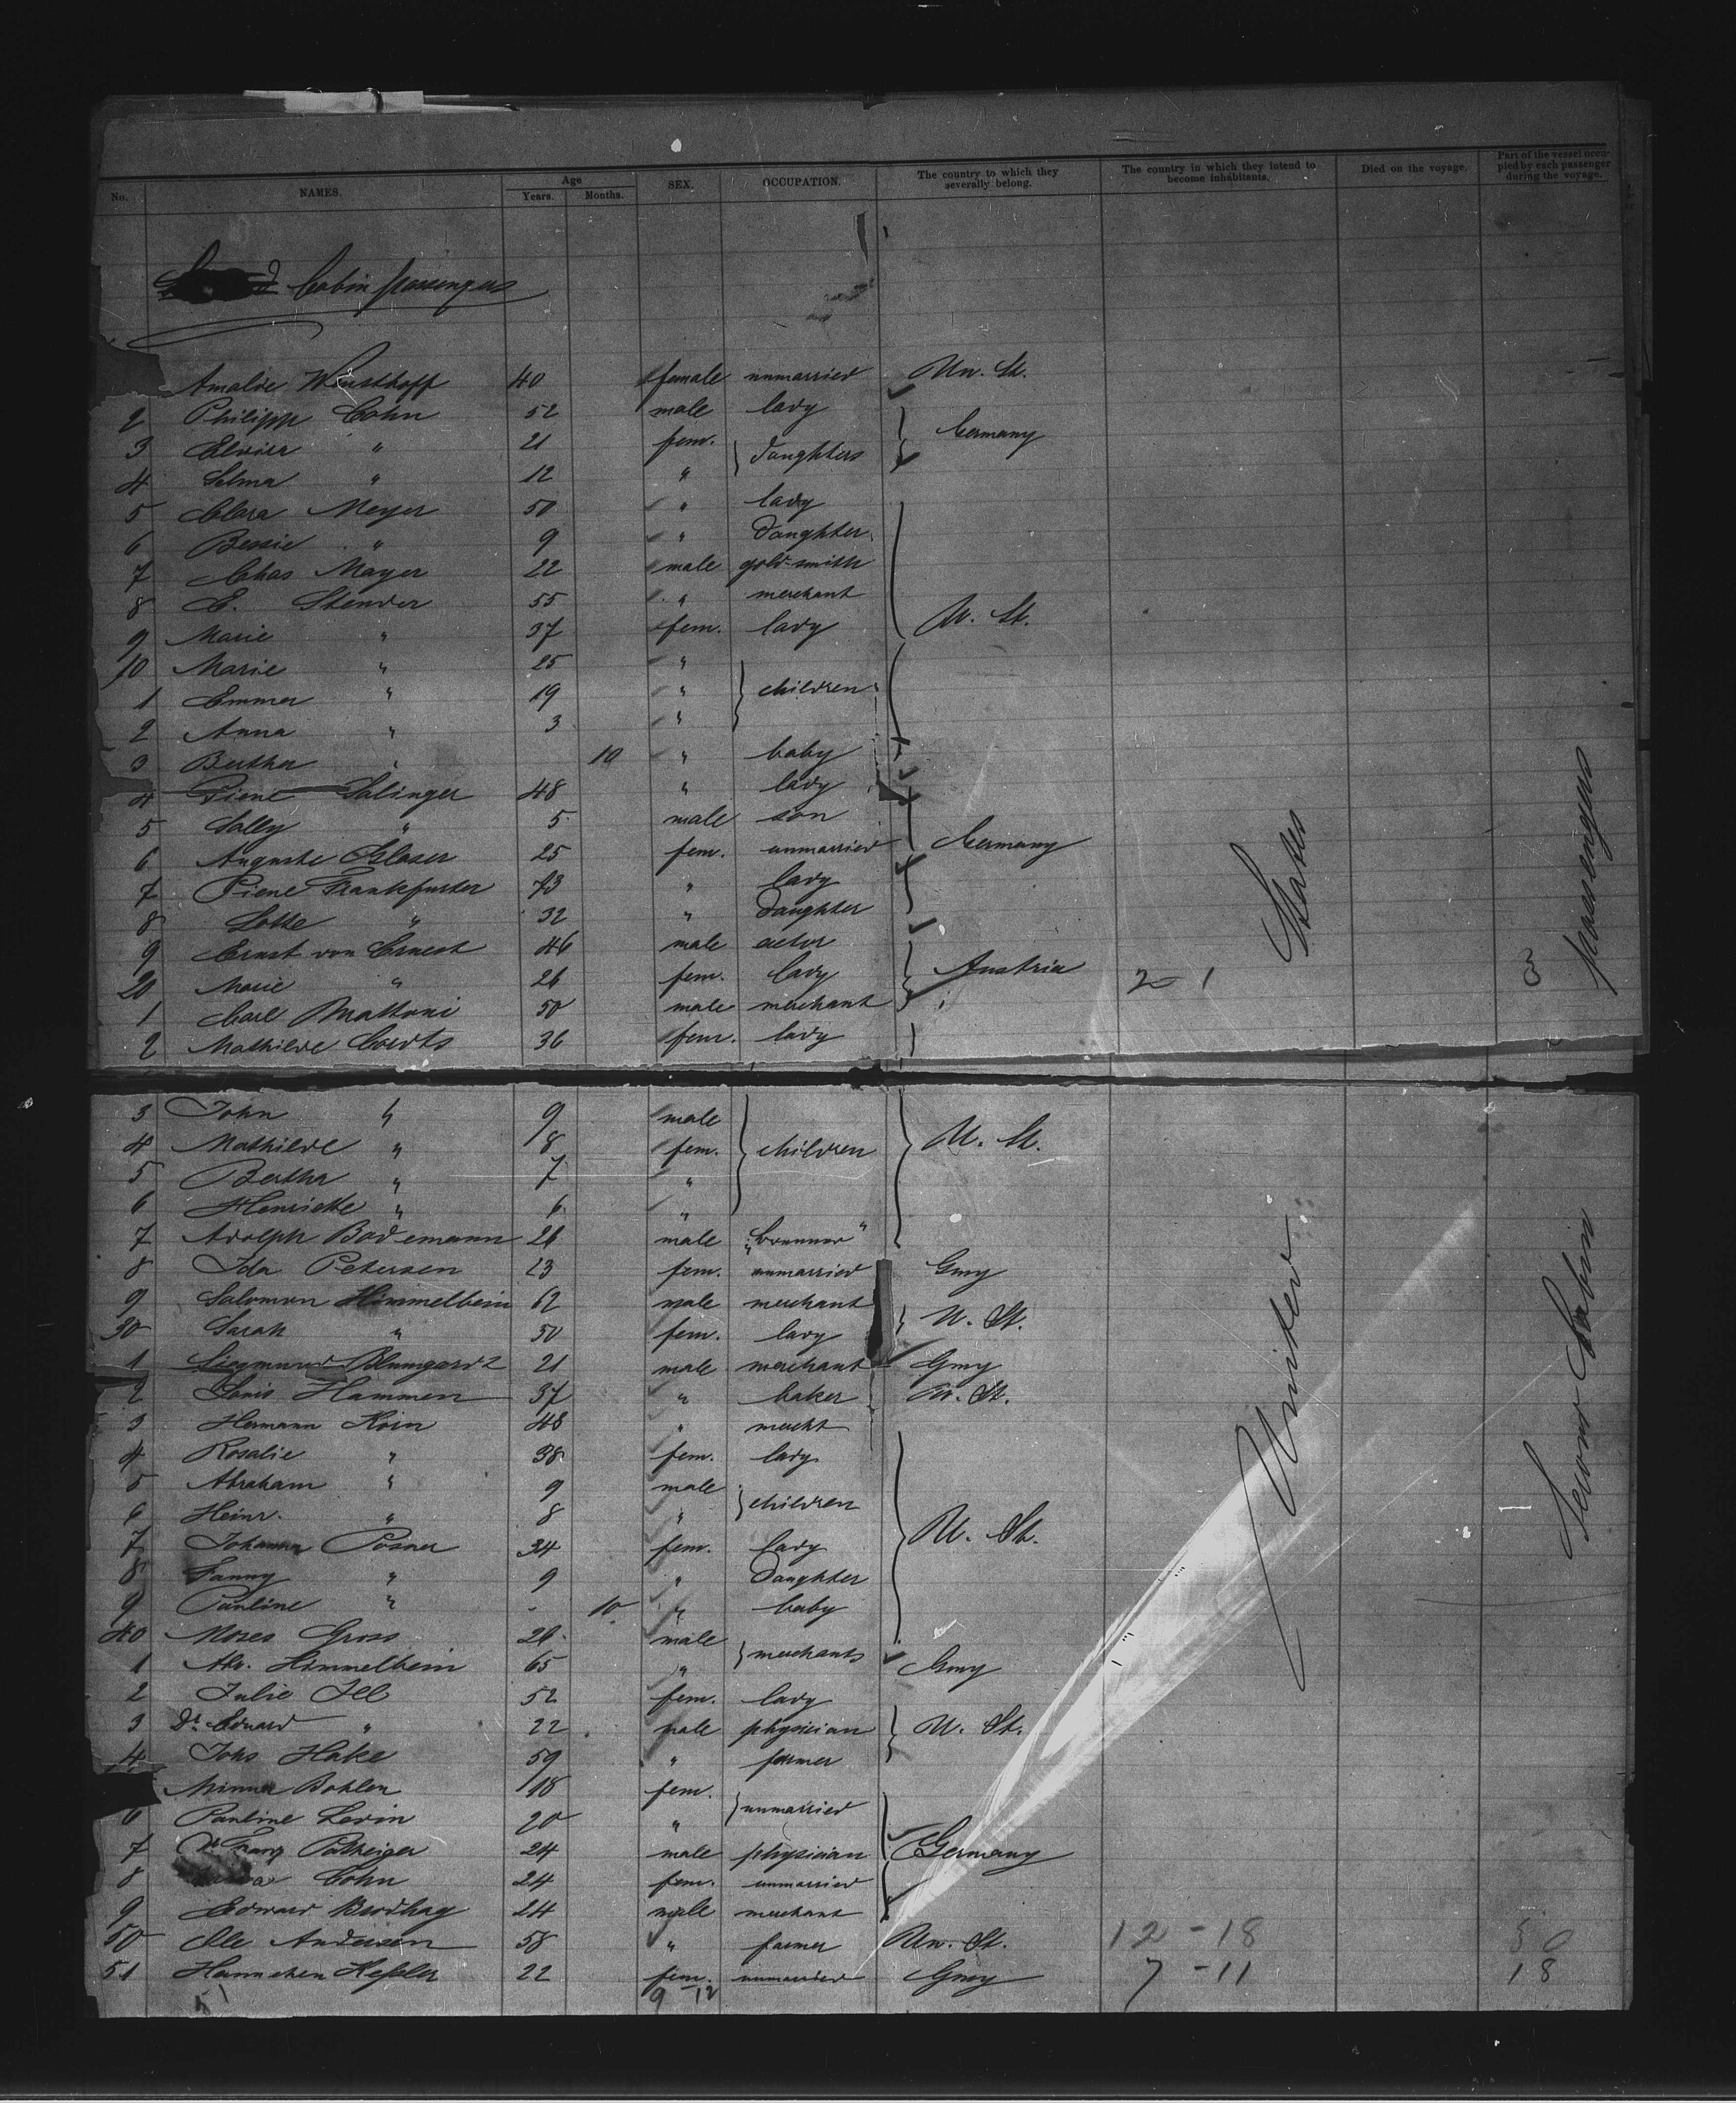 No. NAMES. Age Years. Months. SEX. OCCUPATION. The country to which they severally belong. The country in which they intend to become inhabitants. Died on the voyage. Part of the vessel occupied by each passenger during the voyage.
Cabin passengers
Amalie 40 female unmarried Un. St.
2 Philipp Cohn 52 male lady
3 " 21 fem. daughters Germany
4 Selma " 12 "
5 Clara Meyer 50 " lady
6 Bessie " 9 " daughter
7 Chas Mayer 22 male gold-smith
8 E. Stender 55 " merchant
9 Marie " 37 fem. lady U. St.
10 Marie " 25 "
1 Emma " 19 " children
2 Anna " 3 "
3 Bertha " 10 " baby
4 Salinger 48 " lady
5 Sally " 5 male son
6 Auguste Glaser 25 fem. unmarried Germany
7 Frankfurter 73 " lady
8 Lotte " 32 " daughter
9 Ernst von Ernest 46 male actor
20 Marie " 26 fem. lady Austria 2-1 3
1 Carl Mattoni 50 male merchant
2 Mathilde Coerts 36 fem. lady
3 John " 9 male
4 Mathilde " 8 fem. children U. St.
5 Bertha " 7 "
6 Henriette " 6 "
7 Adolph Bodemann 26 male
8 Ida Petersen 23 fem. unmarried Gmy
9 Salomon Himmelbein 62 male merchant U. St.
30 Sarah " 50 fem. lady
1 Siegmund Blumgardt 21 male merchant Gmy
2 Hammen 37 " baker Un. St.
3 Hermann Korn 48 " mercht
4 Rosalie " 38 fem. lady
5 Abraham " 9 male children
6 Heinr. " 8 "
7 Johanna Posner 34 fem. lady U. St.
8 Fanny " 9 " daughter
9 Pauline " - 10 " baby
40 Moses Gross 26 male merchants
1 Abr. Himmelbein 65 " Gmy
2 Julie Ill 52 fem. lady
3 Dr. Eduard " 22 male physician U. St.
4 Johs Hake 59 " farmer
Minna Bohlen 18 fem. unmarried
6 Pauline Levin 20 "
7 Dr. Franz 24 male physician Germany
8 Cohn 24 fem. unmarried
9 Edward Brodhag 24 male merchant
50 Ole Andersen 58 " farmer Un. St. 12-18 50
51 Hannchen Kessler 22 fem. unmarried Gmy 7-11 18
51 9-12
United States
Second Cabin passengers